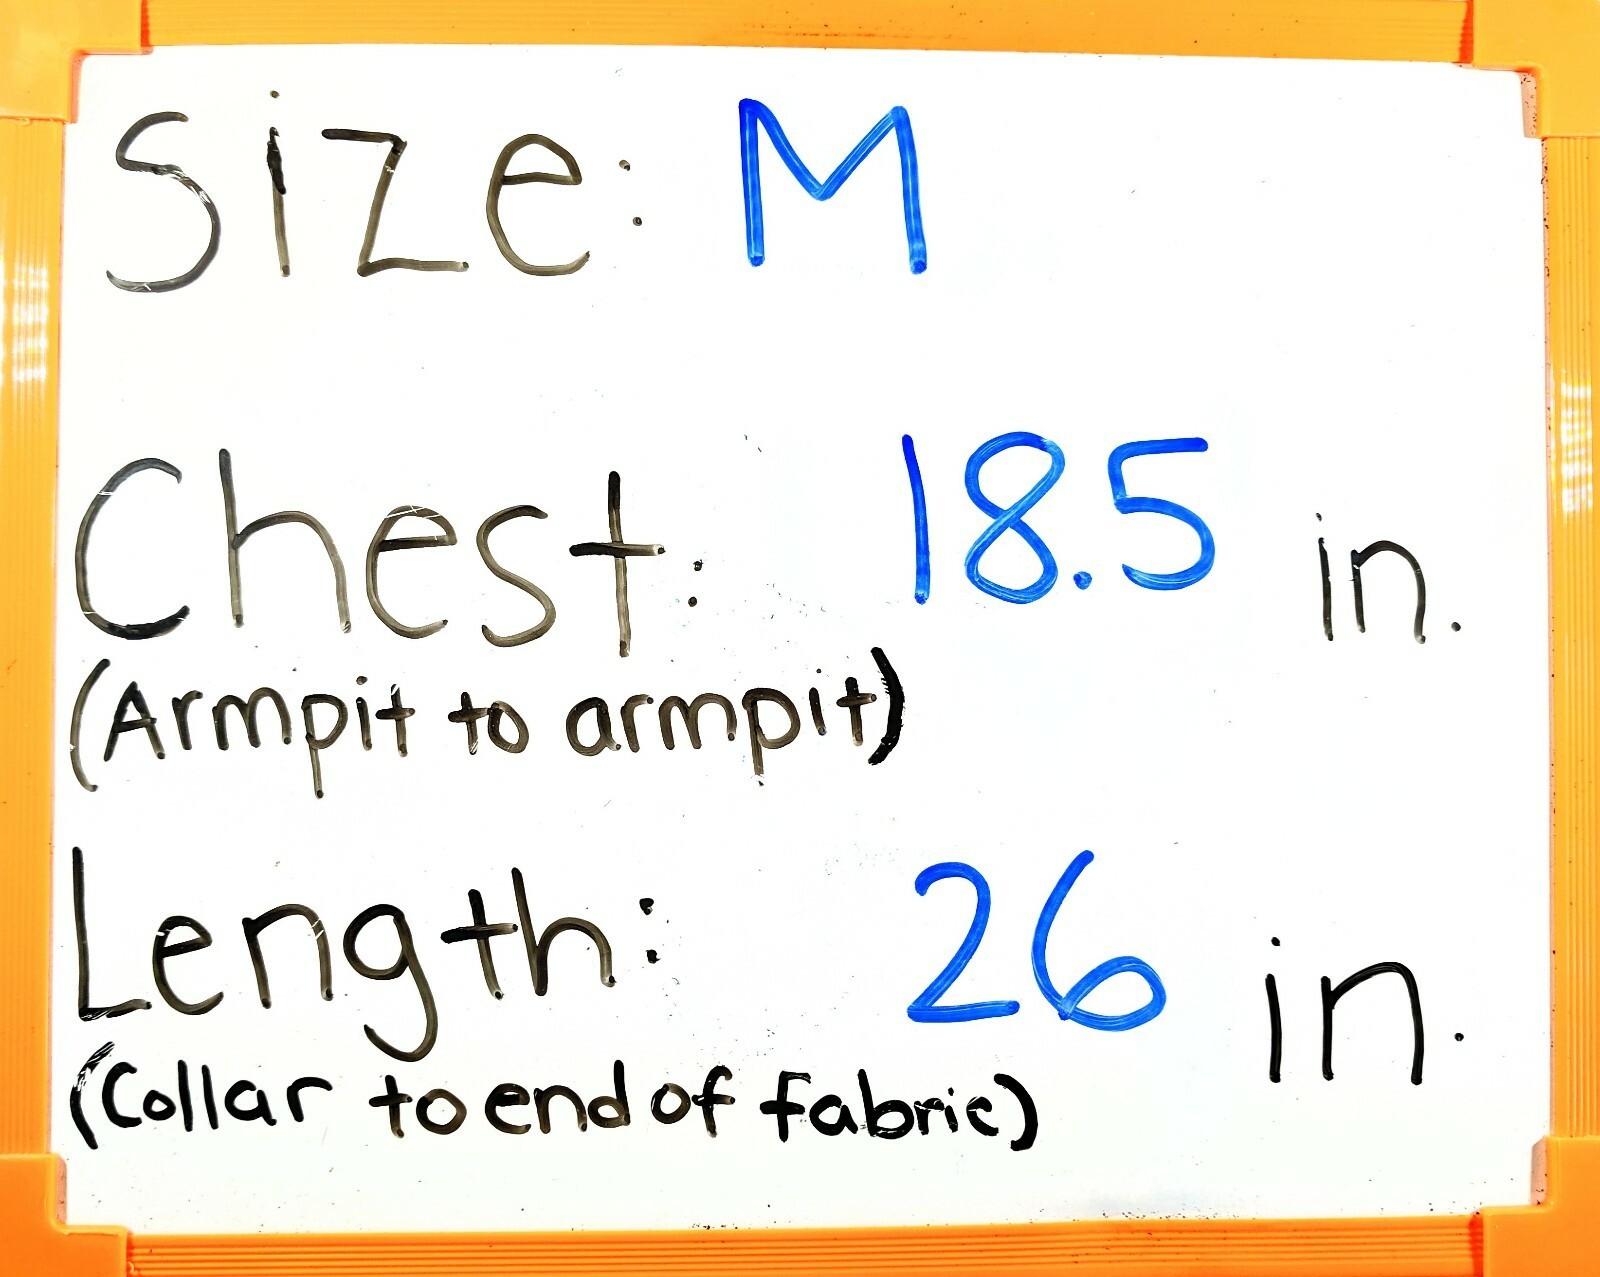 Size: M
Chest: 18.5 in.
(Armpit to armpit)
Length: 26 in.
(Collar to end of fabric)